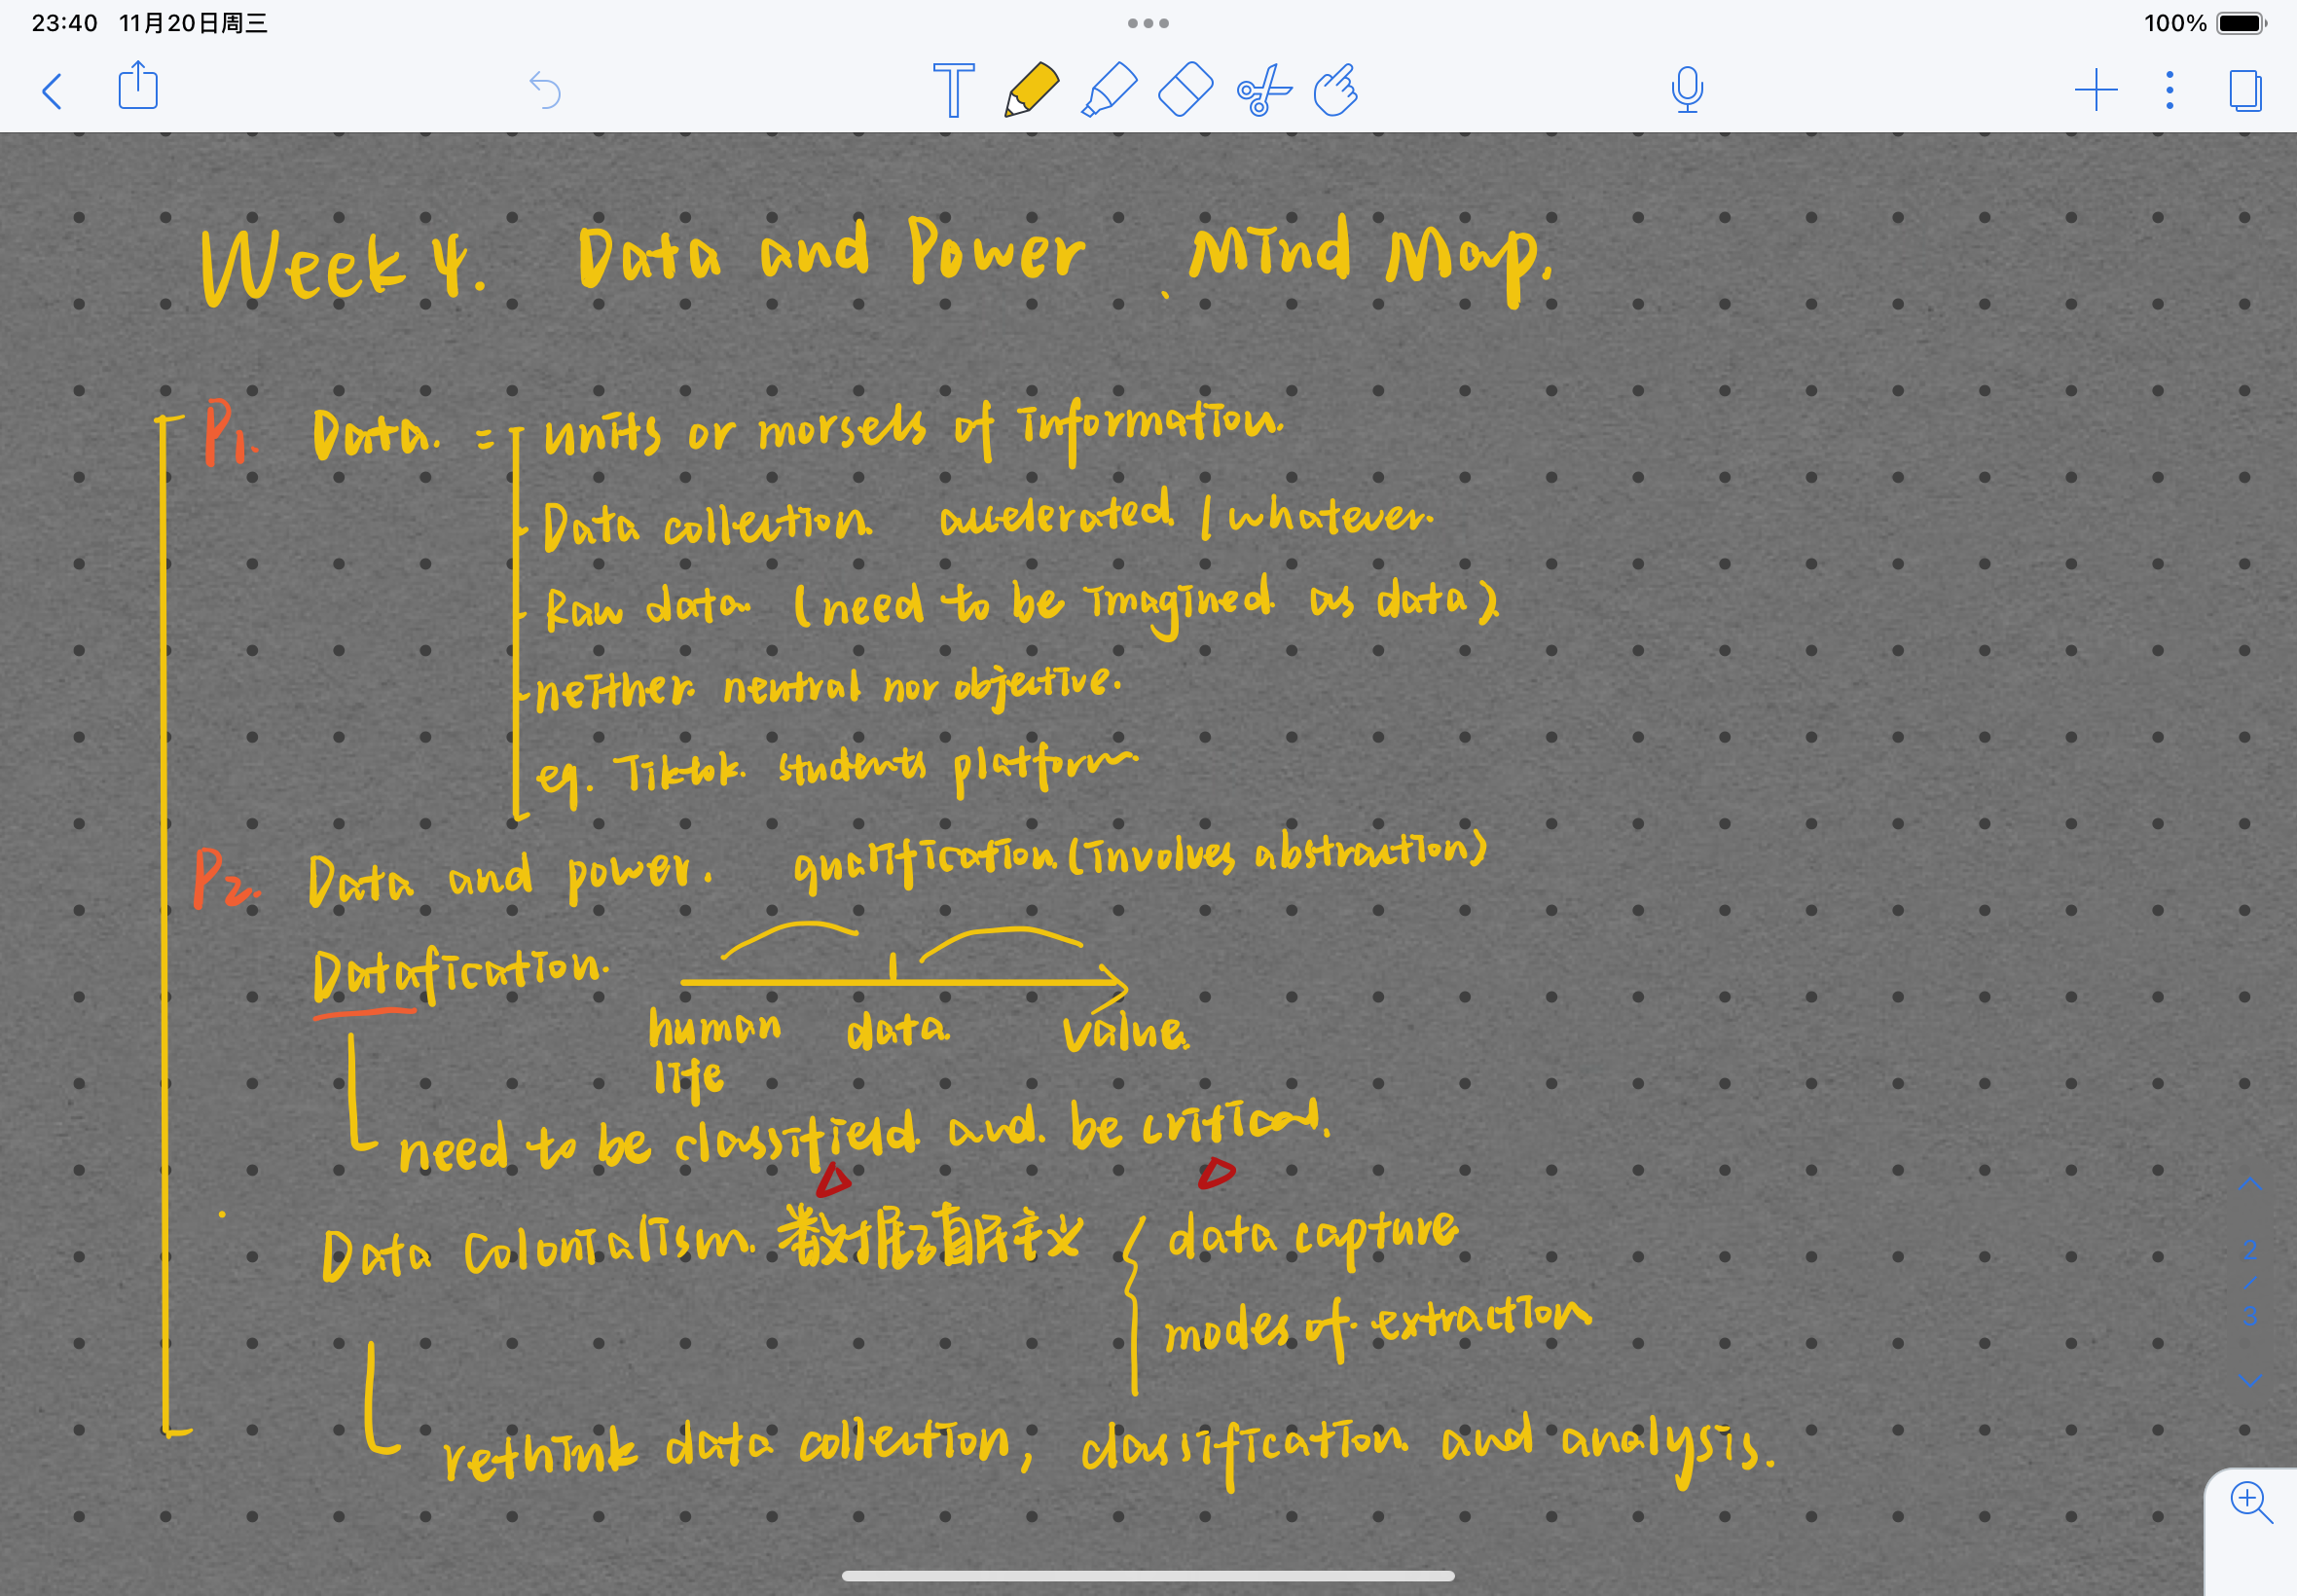 23:40 11月20日周三
100%
Week 4. Data and Power . Mind Map.
P1. Data. = units or morsels of information.
- Data collection. accelerated. / whatever.
- Raw data (need to be imagined as data).
- neither neutral nor objective.
eg. Tiktok. students platform.
P2. Data and power. quantification. (involves abstraction)
Datafication.
human life data. value.
need to be classifield. and. be critical.
Data Colonialism. 数据殖民主义 { data capture
modes of. extraction
rethink data collection, classification. and analysis.
2
/
3